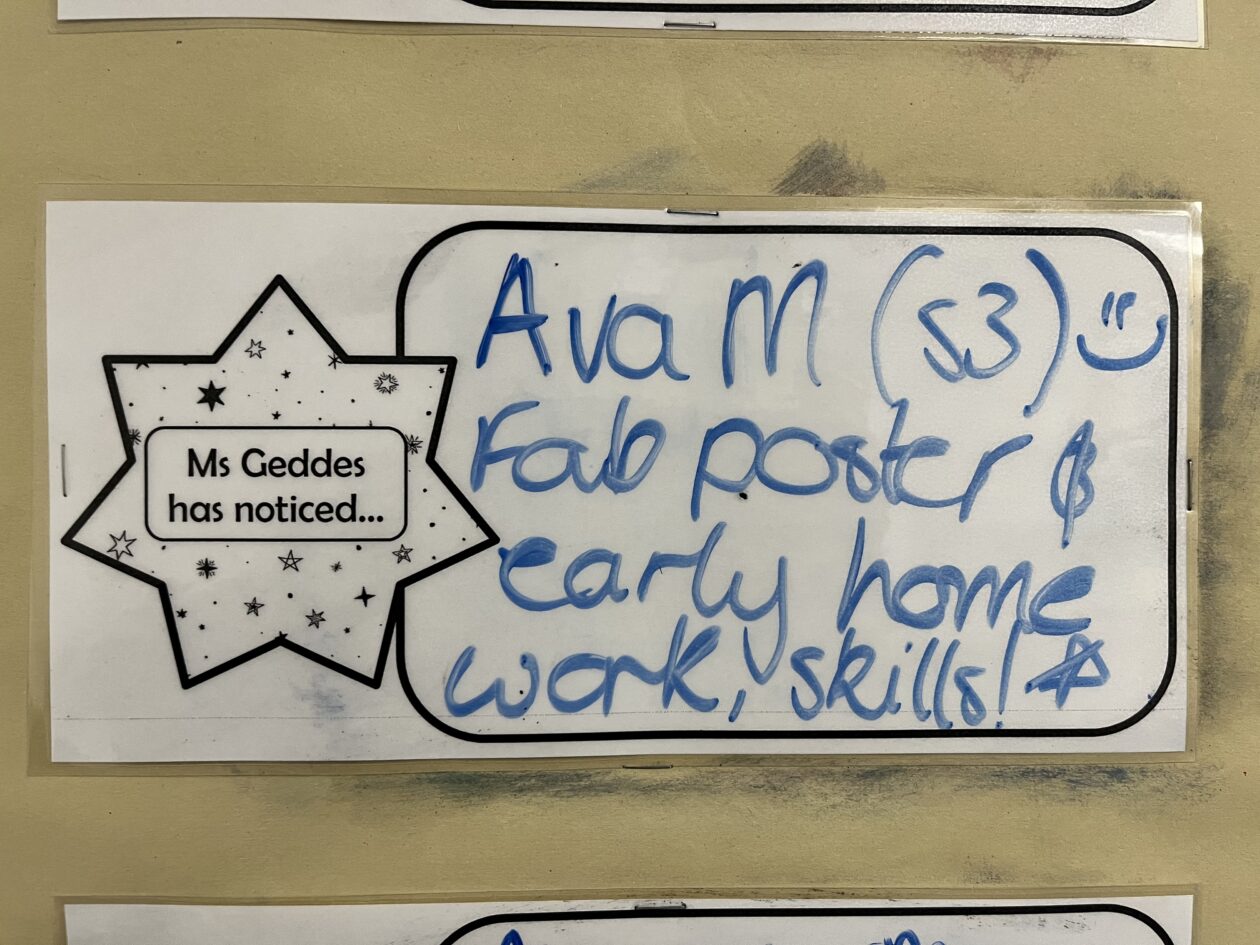 Ms Geddes
has noticed...
Ava M (S3)
Fab poster &
early home
work, skills!